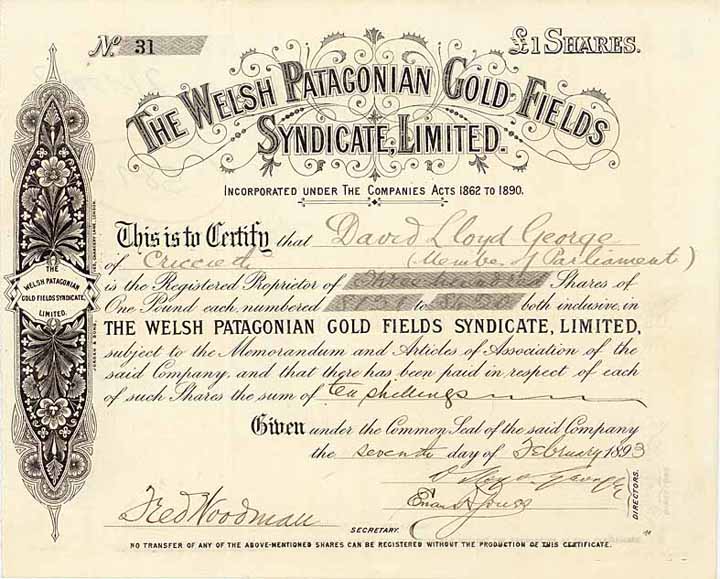 No. 31
£1 SHARES.
THE WELSH PATAGONIAN GOLD FIELDS
SYNDICATE, LIMITED.
INCORPORATED UNDER THE COMPANIES ACTS 1862 TO 1890.
This is to Certify that David Lloyd George
of Criccieth (Member of Parliament)
is the Registered Proprietor of Shares of
One Pound each, numbered to both inclusive, in
THE WELSH PATAGONIAN GOLD FIELDS SYNDICATE, LIMITED,
subject to the Memorandum and Articles of Association of the
said Company, and that there has been paid in respect of each
of such Shares the sum of ten shillings
Given under the Common Seal of the said Company
the seventh day of February 1893
D Lloyd George
Fred Woodman
SECRETARY.
DIRECTORS.
NO TRANSFER OF ANY OF THE ABOVE-MENTIONED SHARES CAN BE REGISTERED WITHOUT THE PRODUCTION OF THIS CERTIFICATE.
THE
WELSH PATAGONIAN
GOLD FIELDS SYNDICATE,
LIMITED.